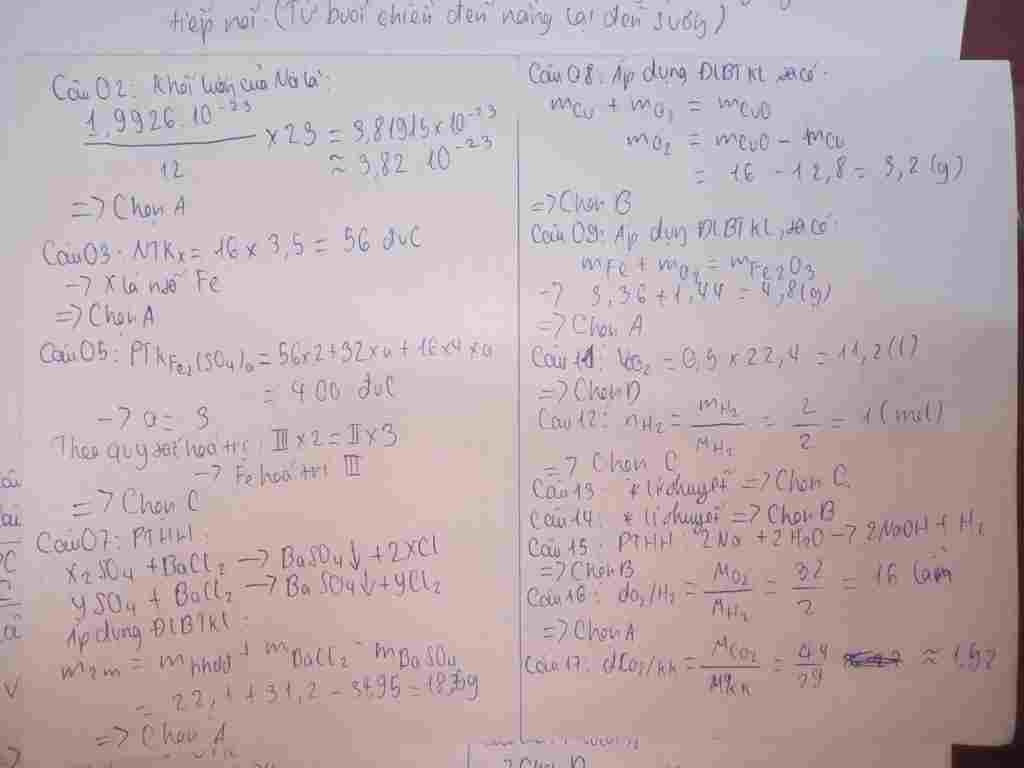 tiếp nơi (Từ buổi chiều đến nàng lại đến sường)
Câu 02: Khối lượng của Na là:
1,9926.10⁻²³ / 12 × 23 = 3,81915×10⁻²³
≈ 3,82 10⁻²³
=> Chọn A
Câu 03. NTKₓ = 16 × 3,5 = 56 đvC
-> X là ntố Fe
=> Chọn A
Câu 05: PTK Fe₂(SO₄)ₐ = 56×2+32×a+16×4×a
= 400 đvC
-> a = 3
Theo quy tắt hoá trị: III × 2 = II × 3
-> Fe hoá trị III
=> Chọn C
Câu 07: PTHH:
X₂SO₄ + BaCl₂ -> BaSO₄↓ + 2XCl
YSO₄ + BaCl₂ -> BaSO₄↓ + YCl₂
Áp dụng ĐLBTKL:
m₂m = mhhđđ + mBaCl₂ - mBaSO₄
= 22,1 + 31,2 - 34,95 = 18,35g
=> Chọn A
Câu 08: Áp dụng ĐLBTKL, ta có:
mCu + mO₂ = mCuO
mO₂ = mCuO - mCu
= 16 - 12,8 = 3,2 (g)
=> Chọn B
Câu 09: Áp dụng ĐLBTKL, ta có:
mFe + mO₂ = mFe₂O₃
-> 3,36 + 1,44 = 4,8 (g)
=> Chọn A
Câu 11: VO₂ = 0,5 × 22,4 = 11,2 (l)
=> Chọn D
Câu 12: nH₂ = mH₂ / MH₂ = 2 / 2 = 1 (mol)
=> Chọn C
Câu 13: * lí thuyết => Chọn C
Câu 14: * lí thuyết => Chọn B
Câu 15: PTHH: 2Na + 2H₂O -> 2NaOH + H₂
=> Chọn B
Câu 16: dO₂/H₂ = MO₂ / MH₂ = 32 / 2 = 16 lần
=> Chọn A
Câu 17: dCO₂/KK = MCO₂ / MKK = 44 / 29 ≈ 1,52